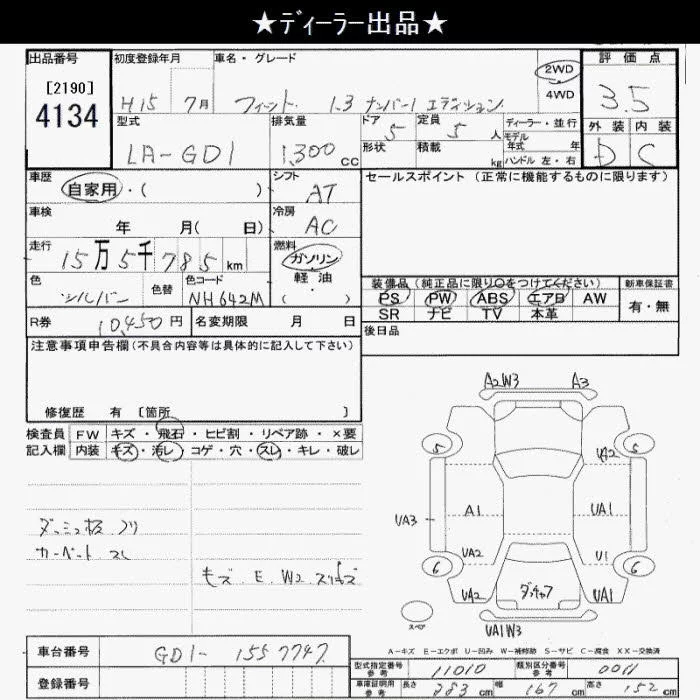 ★ディーラー出品★
出品番号 初度登録年月 車名・グレード 2WD 4WD 評価点
[2190] 4134 H15 7月 フィット 1.3 ナンバー1 エディション 3.5
型式 排気量 ドア 定員 ディーラー・並行 外装 内装
LA-GD1 1,300 cc 5 5 人 モデル年式 年 D C
形状 積載 kg ハンドル 左・右
車歴 自家用・( ) シフト AT セールスポイント (正常に機能するものに限ります)
車検 年 月( 日) 冷房 AC
走行 15万5千785 km 燃料 ガソリン 軽油 ( )
色 シルバー 色替 色コード NH642M
装備品(純正品に限り○をつけてください) 新車保証書
PS PW ABS エアB AW 有・無
SR ナビ TV 本革
R券 10,450円 名変期限 月 日 後日品
注意事項申告欄(不具合内容等は具体的に記入して下さい)
修復歴 有 [箇所 ]
検査員 FW キズ・飛石・ヒビ割・リペア跡・×要
記入欄 内装 キズ・汚レ・コゲ・穴・スレ・キレ・破レ
カーペット スレ
A2W3 A3
5 A2 5
A1 UA1
UA3
UA2 U1
6 6
UA2 UA1
スペア UA1W3
A-キズ E-エクボ U-凹み W-補修跡 S-サビ C-腐食 XX-交換済
車台番号 GD1-1557747
登録番号
型式指定番号 参考 11010 類別区分番号 参考 0011
車庫証明用 参考 長さ 383 cm 幅 167 cm 高さ 152 cm